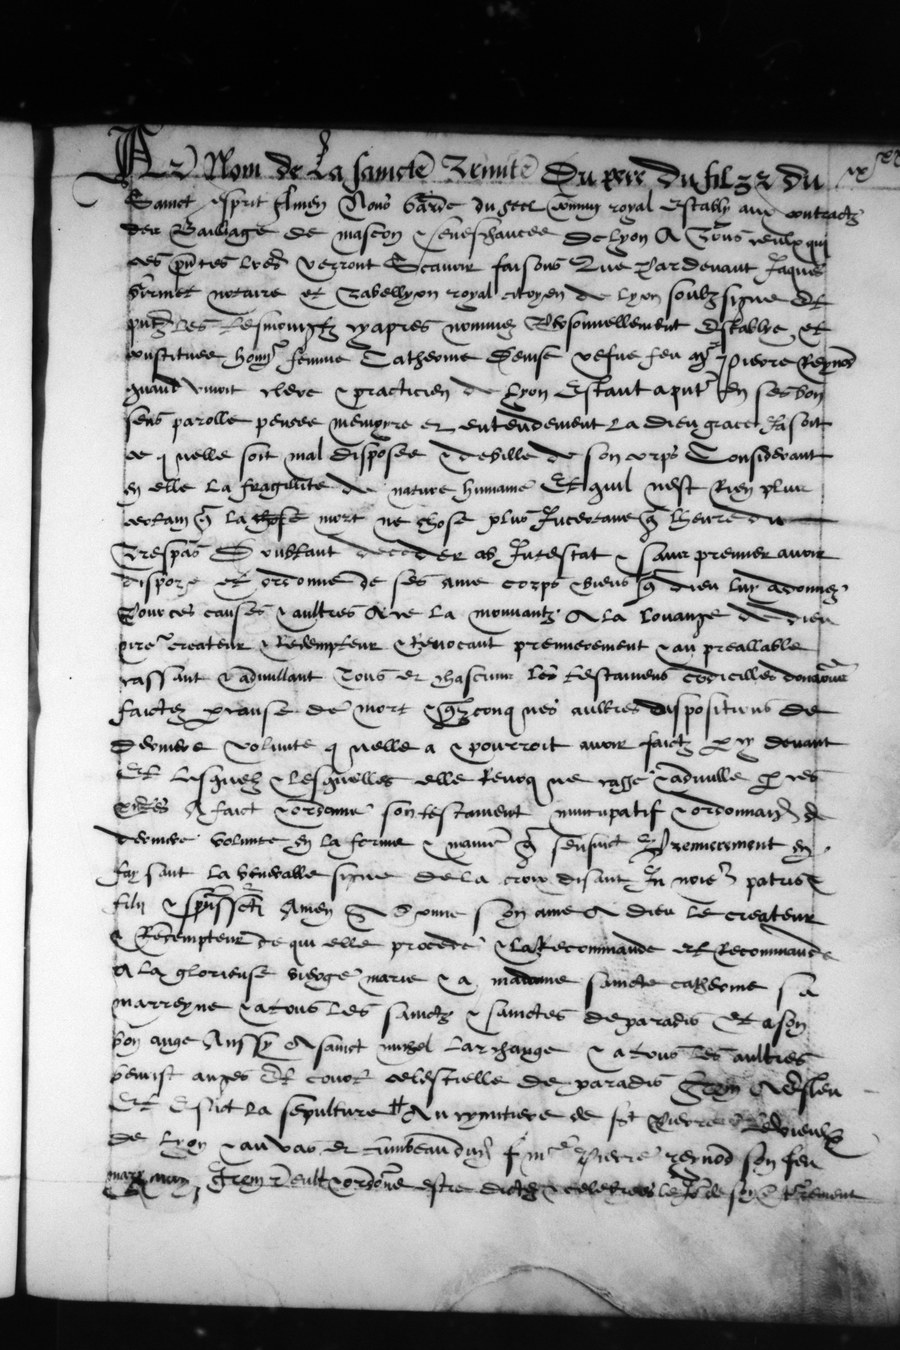 Au Nom de La saincte Trinité Du pere du filz & du
Sainct esprit Amen Nous Garde du seel commun royal Estably aux contractz
des Bailliage de mascon & seneschaucee de Lyon A Tous ceulx qui
ces pntes Lres verront Scavoir faisons Que Pardevant Jaques
notaire et Tabellyon royal citoyen de lyon soubz signe Et
pntz Les tesmoingtz cyapres nommez Personnellement Establye et
constituee femme Catherine vefve feu Pierre Reynod
quand vivoit clerc & practicien de Lyon Estant a En ses bon
sens parolle pensee memoyre et entendement La dieu grace Jasoit
ce q uelle soit mal disposee & debille de son corps Considerant
en elle La fragillite de nature humaine Et quil nest Rien plus
certain q La mort ne chose plus Incertaine q Lheure du
Trespas deceder ab Intestat & sans premier avoir
dispoze et ordonne de ses ame corps & biens q dieu luy a donnez
Pour ces causes & aultres A ce La mouvantz A La Louange de dieu
createur & Redempteur & Revocant premierement & au preallable
cassant & adnullant Tous et chascuns Les testamens codicilles
faictz p cause de mort & conq ues aultres dispositions de
derniere volunte q uelle a & pourroit avoir faictz p cy devant
Et Lesquelz & Lesquelles elle Revoq ue casse & adnulle p ces
A faict & ordonne son testament nuncupatif & ordonnance de
derniere volunte En la forme & q sensuit Premierement En
faysant La venerable signe de La croix disant In patris
filii & Amen donne son ame A dieu Le createur
& Redempteur de qui elle procede & La Recommande et Recommande
A La glorieuse vierge marie & a madame saincte catherine sa
marreyne & a tous Les sainctz & sainctes de paradis Et a son
bon ange Aussy A sainct michel Larchange & a tous Les aultres
benoist anges Et court celestielle de paradis Item
Et Eslict La sepulture Au cymitiere de st Pierre
de Lyon & au vas et tumbeau f me Pierre reynod son feu
mary Item veult & ordonne estre dictz & celebrees